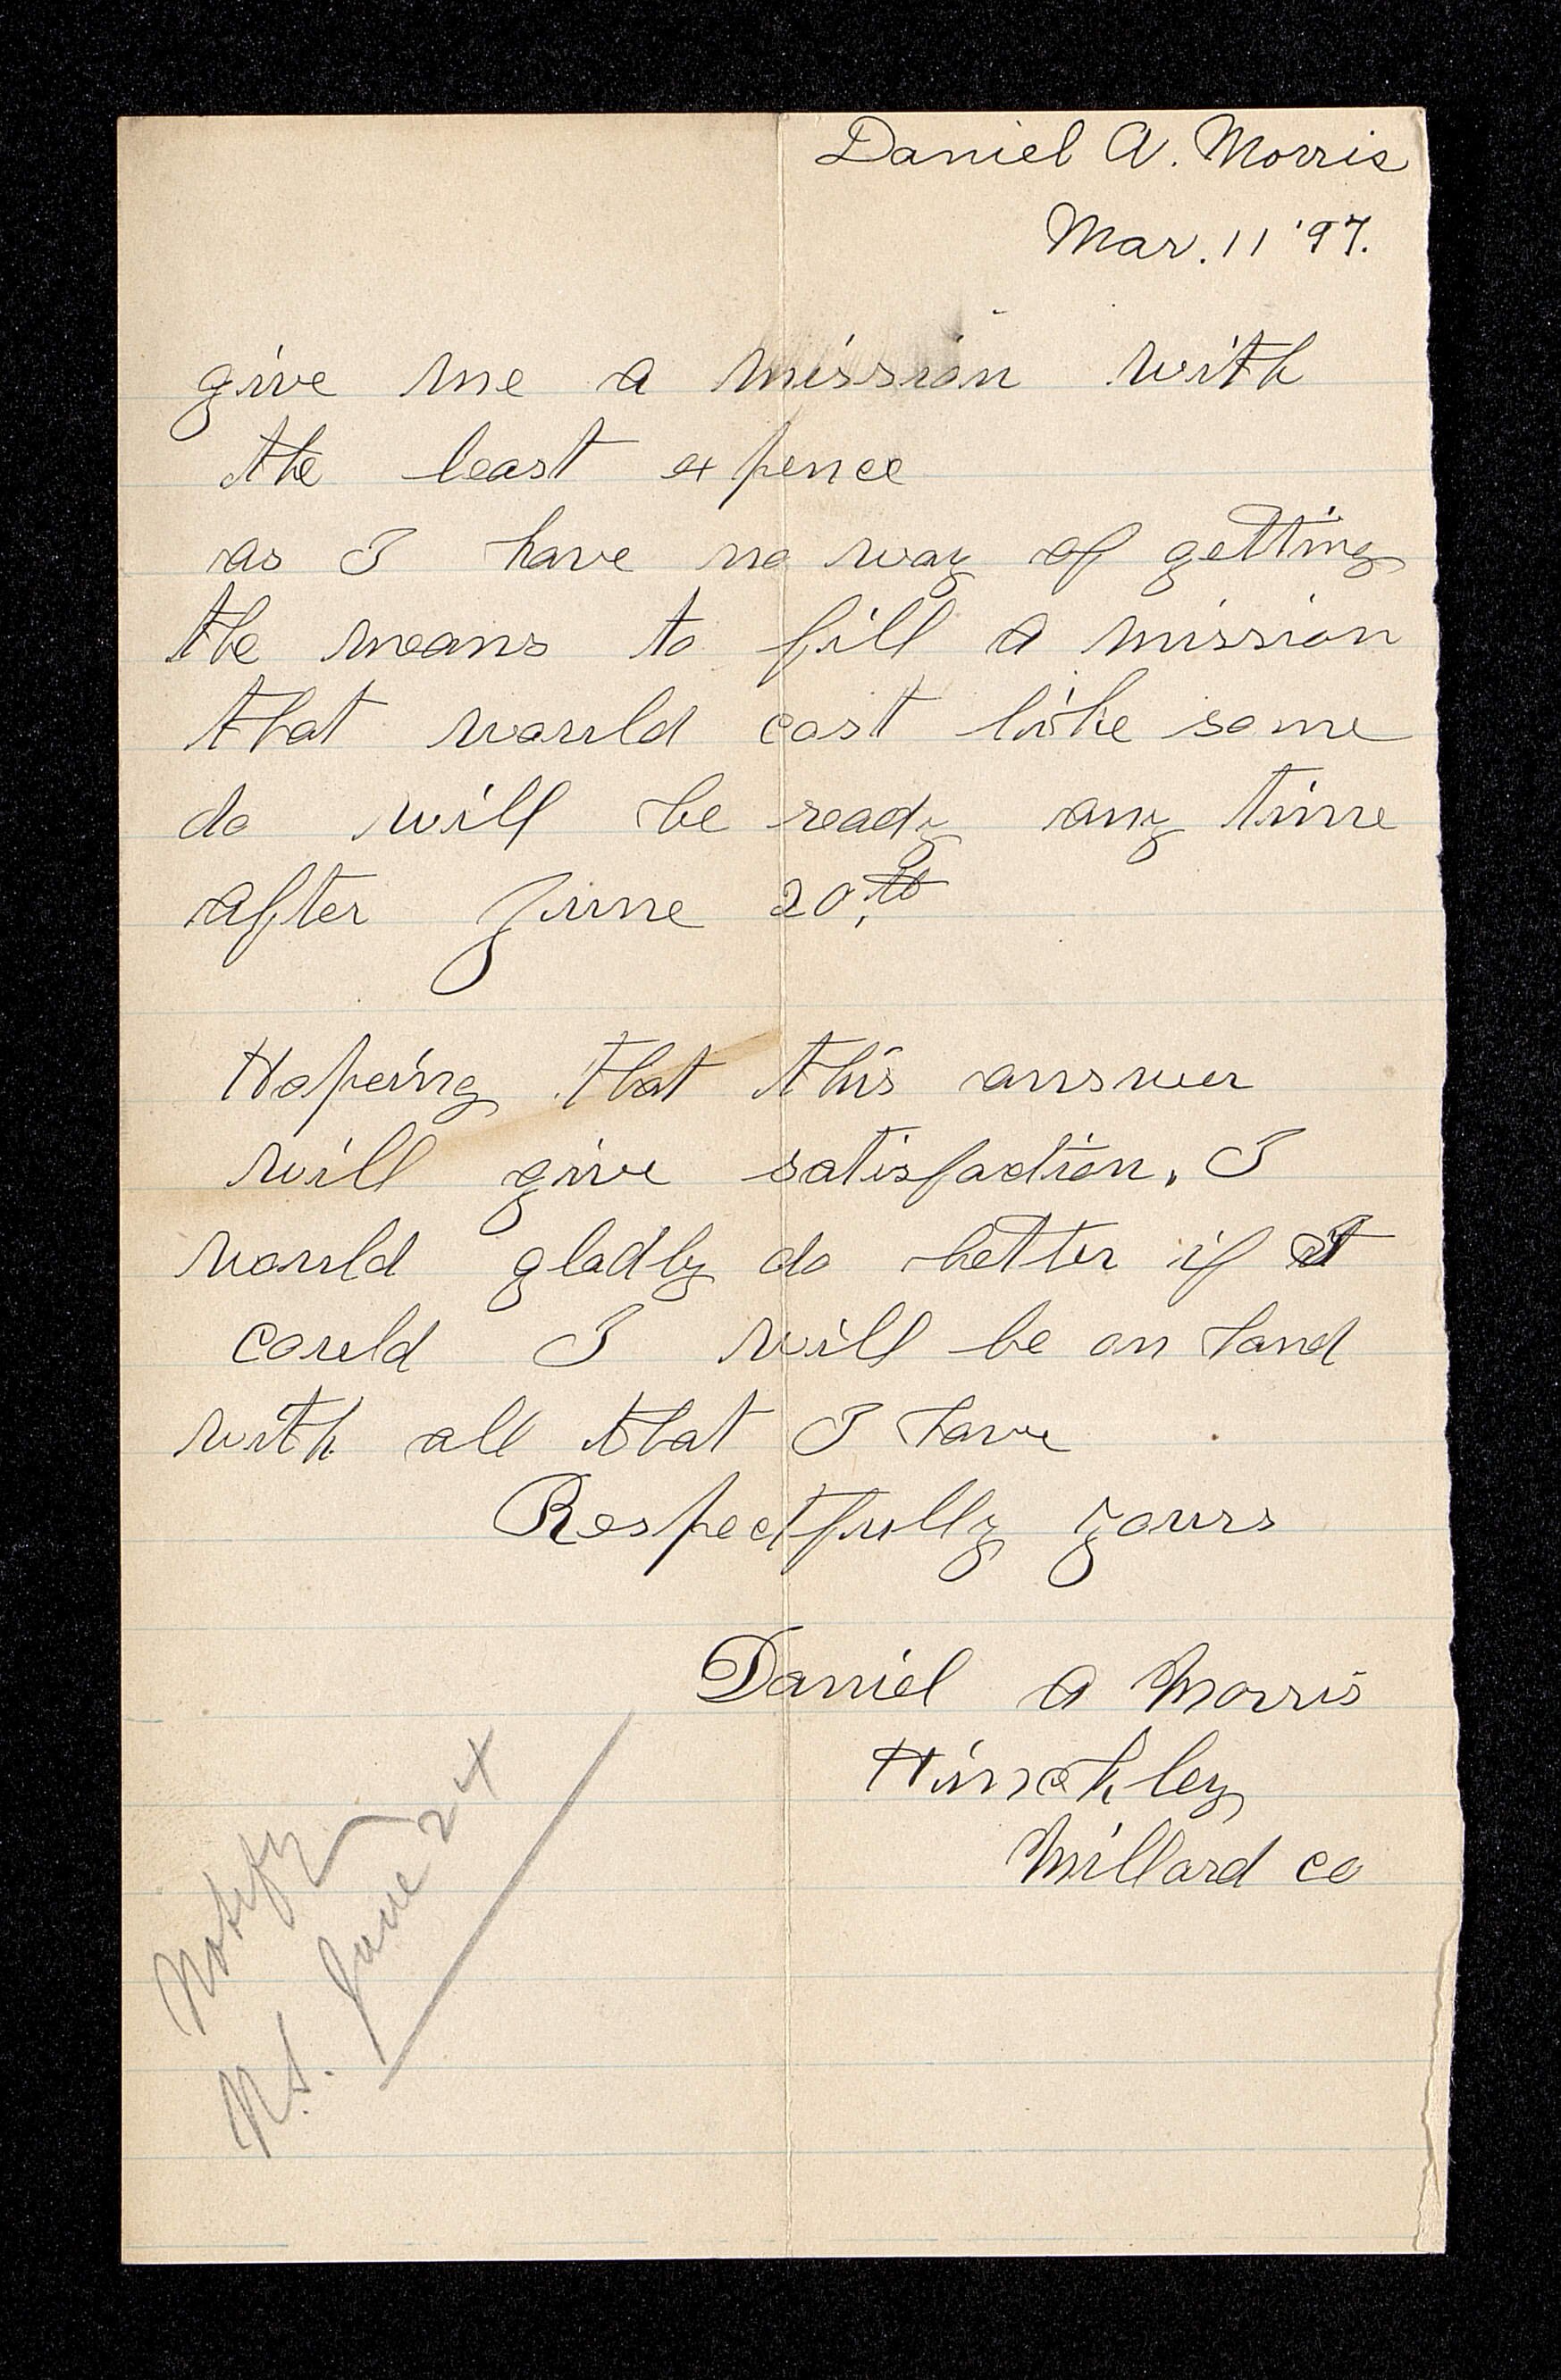 Daniel A. Morris
Mar. 11 '97.
give me a mission with
the least expence
as I have no way of getting
the means to fill a mission
that would cost like some
do will be ready any time
after June 20th
Hopeing that this answer
will give satisfaction. I
would gladly do better if I
could I will be on hand
with all that I have
Respectfully yours
Daniel A Morris
Hinckley
Millard co
Notify
N.S. June 24